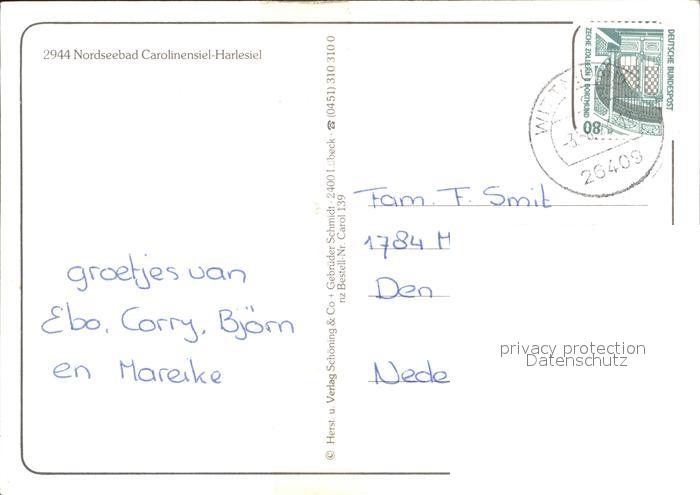 2944 Nordseebad Carolinensiel-Harlesiel
groetjes van
Ebo, Corry, Björn
en Mareike
© Herst. u. Verlag Schöning & Co + Gebrüder Schmidt · 2400 Lübeck · ☎ (0451) 310 310 0
nz Bestell-Nr. Carol 139
DEUTSCHE BUNDESPOST
ZECHE ZOLLERN II DORTMUND
80
26409
Fam. F. Smit
1784 H
Den
Nede
privacy protection
Datenschutz